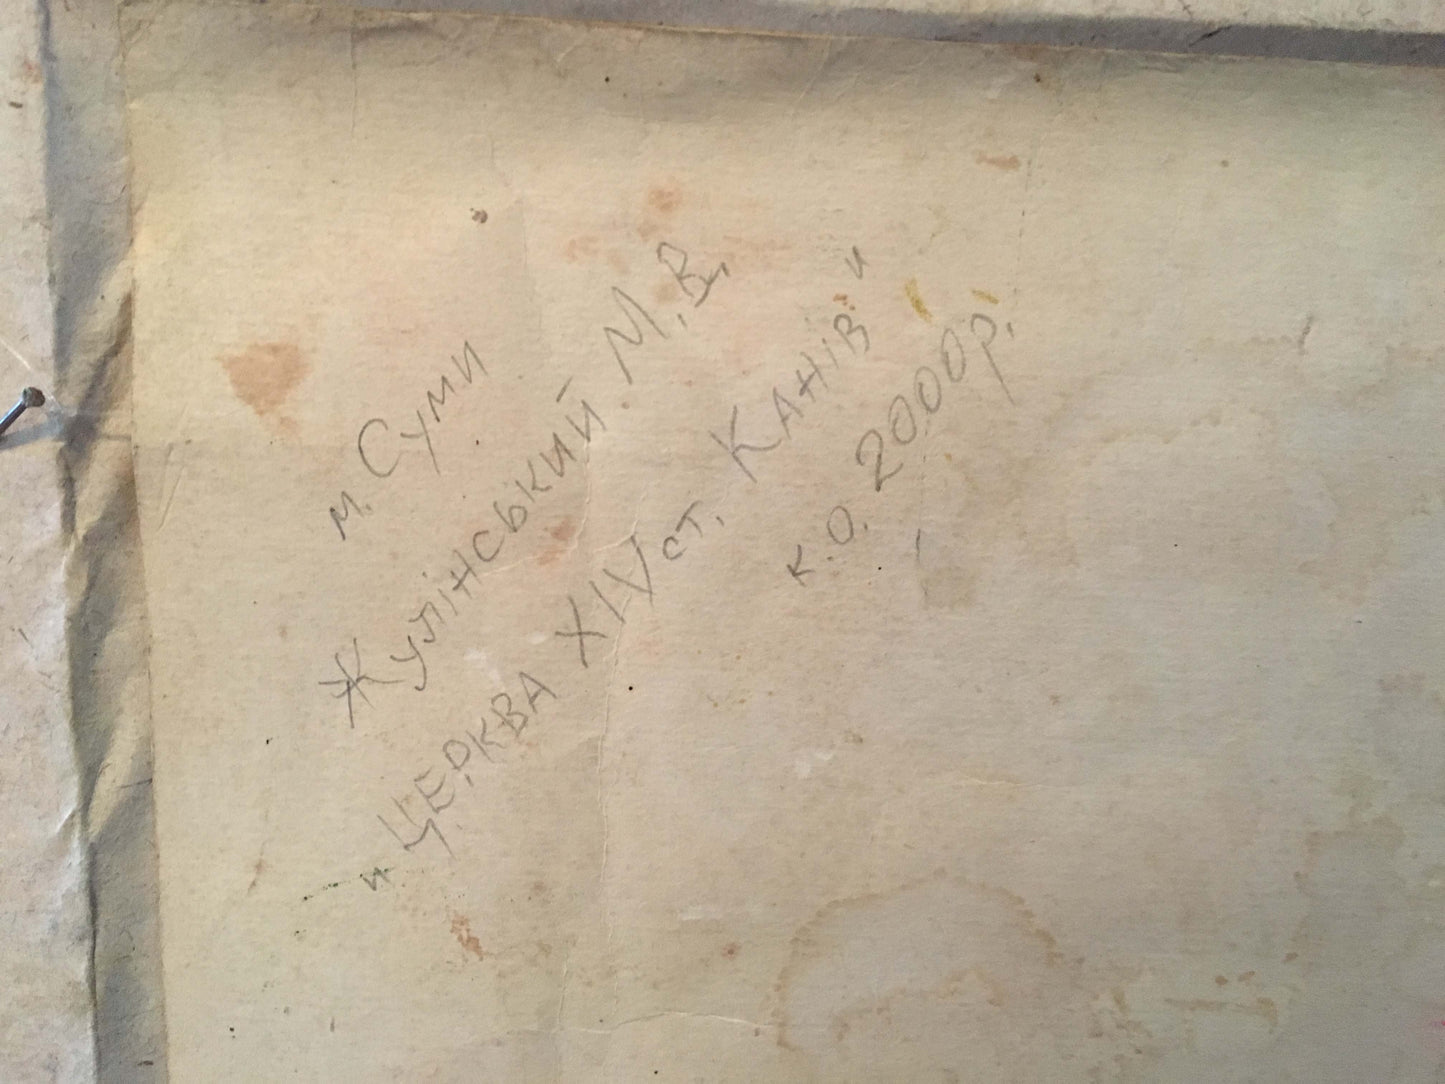 м. Суми
Жулінський. М. В.
"Церква XIV ст. Канів"
к. о. 2000р.